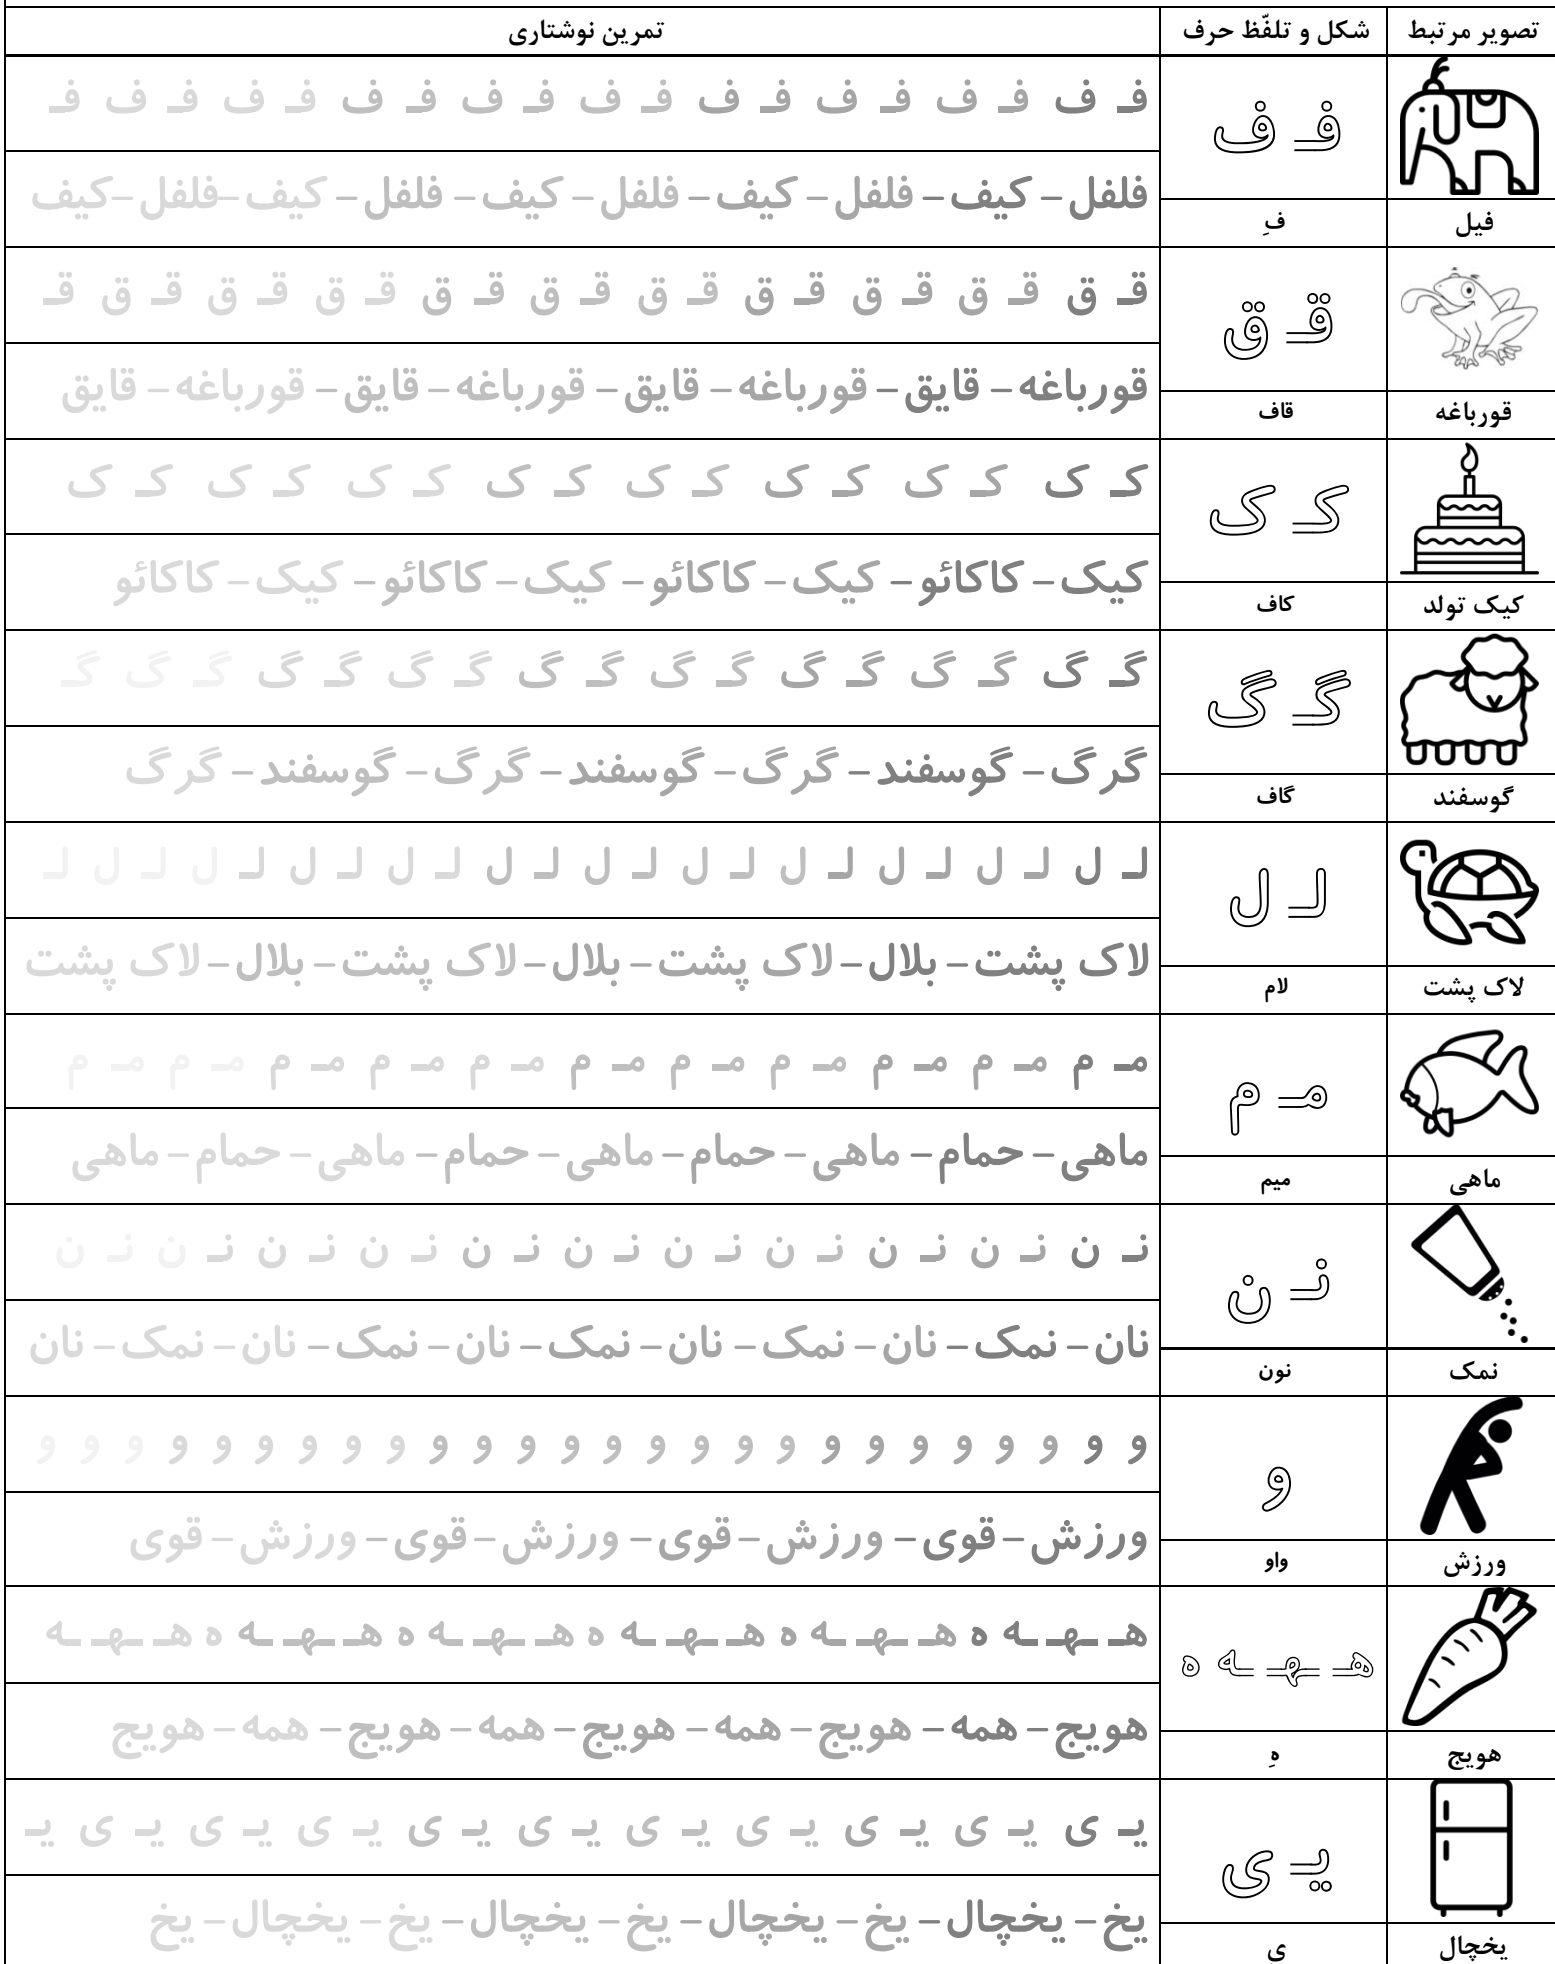 تصویر مرتبط شکل و تلفّظ حرف تمرین نوشتاری
فـ ف فـ ف فـ ف فـ ف فـ ف فـ ف فـ ف فـ ف فـ ف فـ
فـ ف
فلفل – کیف – فلفل – کیف – فلفل – کیف – فلفل – کیف –فلفل –کیف
فیل فِ
قـ ق قـ ق قـ ق قـ ق قـ ق قـ ق قـ ق قـ ق قـ ق قـ ق قـ
قـ ق
قورباغه – قایق – قورباغه – قایق – قورباغه – قایق – قورباغه – قایق
قورباغه قاف
کـ ک کـ ک کـ ک کـ ک کـ ک کـ ک کـ ک کـ ک
کـ ک
کیک – کاکائو – کیک – کاکائو – کیک – کاکائو – کیک – کاکائو
کیک تولد کاف
گـ گ گـ گ گـ گ گـ گ گـ گ گـ گ گـ گ گـ گ گـ
گـ گ
گرگ – گوسفند – گرگ – گوسفند – گرگ – گوسفند – گرگ
گوسفند گاف
لـ ل لـ ل لـ ل لـ ل لـ ل لـ ل لـ ل لـ ل لـ ل لـ ل لـ ل لـ
لـ ل
لاک پشت – بلال –لاک پشت – بلال –لاک پشت – بلال –لاک پشت
لاک پشت لام
مـ م مـ م مـ م مـ م مـ م مـ م مـ م مـ م مـ م مـ م مـ م
مـ م
ماهی – حمام – ماهی – حمام – ماهی – حمام – ماهی – حمام – ماهی
ماهی میم
نـ ن نـ ن نـ ن نـ ن نـ ن نـ ن نـ ن نـ ن نـ ن نـ ن نـ ن
نـ ن
نان – نمک – نان – نمک – نان – نمک – نان – نمک – نان – نمک – نان
نمک نون
و و و و و و و و و و و و و و و و و و و و و و و و و و
و
ورزش – قوی – ورزش – قوی – ورزش – قوی – ورزش – قوی
ورزش واو
هـ ـهـ ـه ه هـ ـهـ ـه ه هـ ـهـ ـه ه هـ ـهـ ـه ه هـ ـهـ ـه ه هـ ـهـ ـه
هـ ـهـ ـه ه
هویج – همه – هویج – همه – هویج – همه – هویج – همه – هویج
هویج هِ
یـ ی یـ ی یـ ی یـ ی یـ ی یـ ی یـ ی یـ ی یـ ی یـ ی یـ
یـ ی
یخ – یخچال – یخ – یخچال – یخ – یخچال – یخ – یخچال – یخ
یخچال یِ